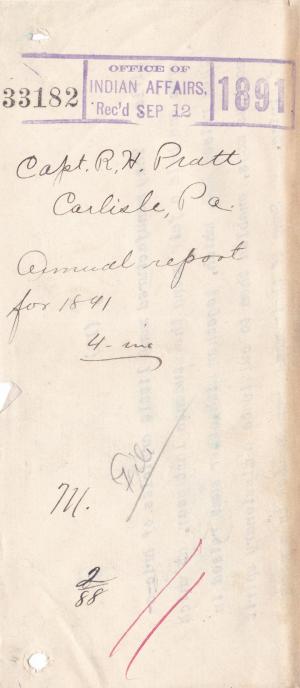 33182
OFFICE OF
INDIAN AFFAIRS,
Rec'd SEP 12
1891
Capt. R. H. Pratt
Carlisle, Pa.
Annual report
for 1891
4- inc
File
M.
2/88